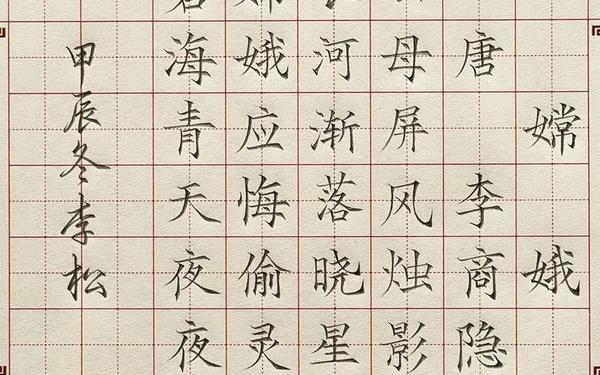 嫦娥
唐李商隐
母屏风烛影
河渐落晓星
娥应悔偷灵
海青天夜夜
甲辰冬李松